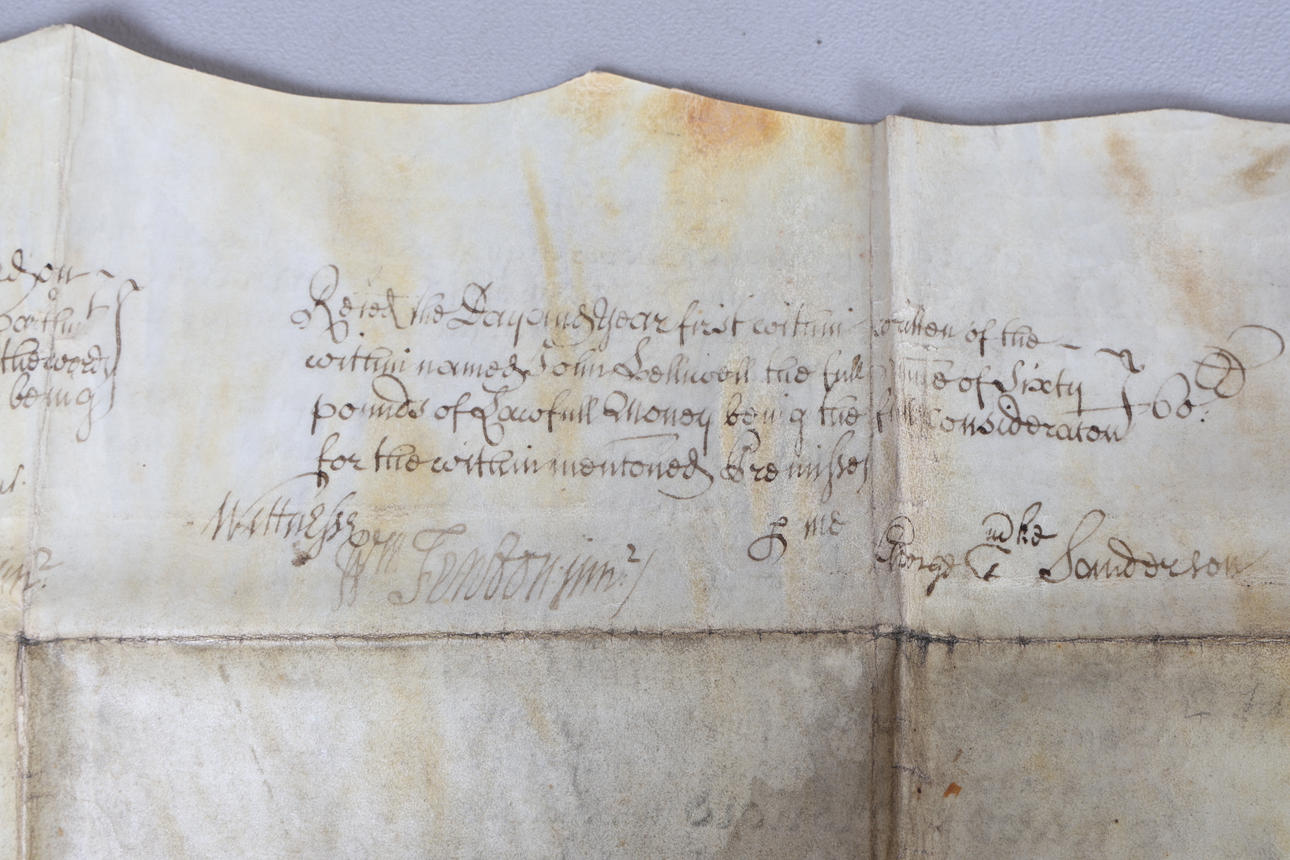 the word
being
Receed the Day and Year first within written of the
within named John Helliwell the full sume of Sixty
pounds of Lawfull Money being the full Consideraton
for the within mentoned Premisses
60:
Wittnesse
Wm Fenton: junr
p me
George Sanderson
marke